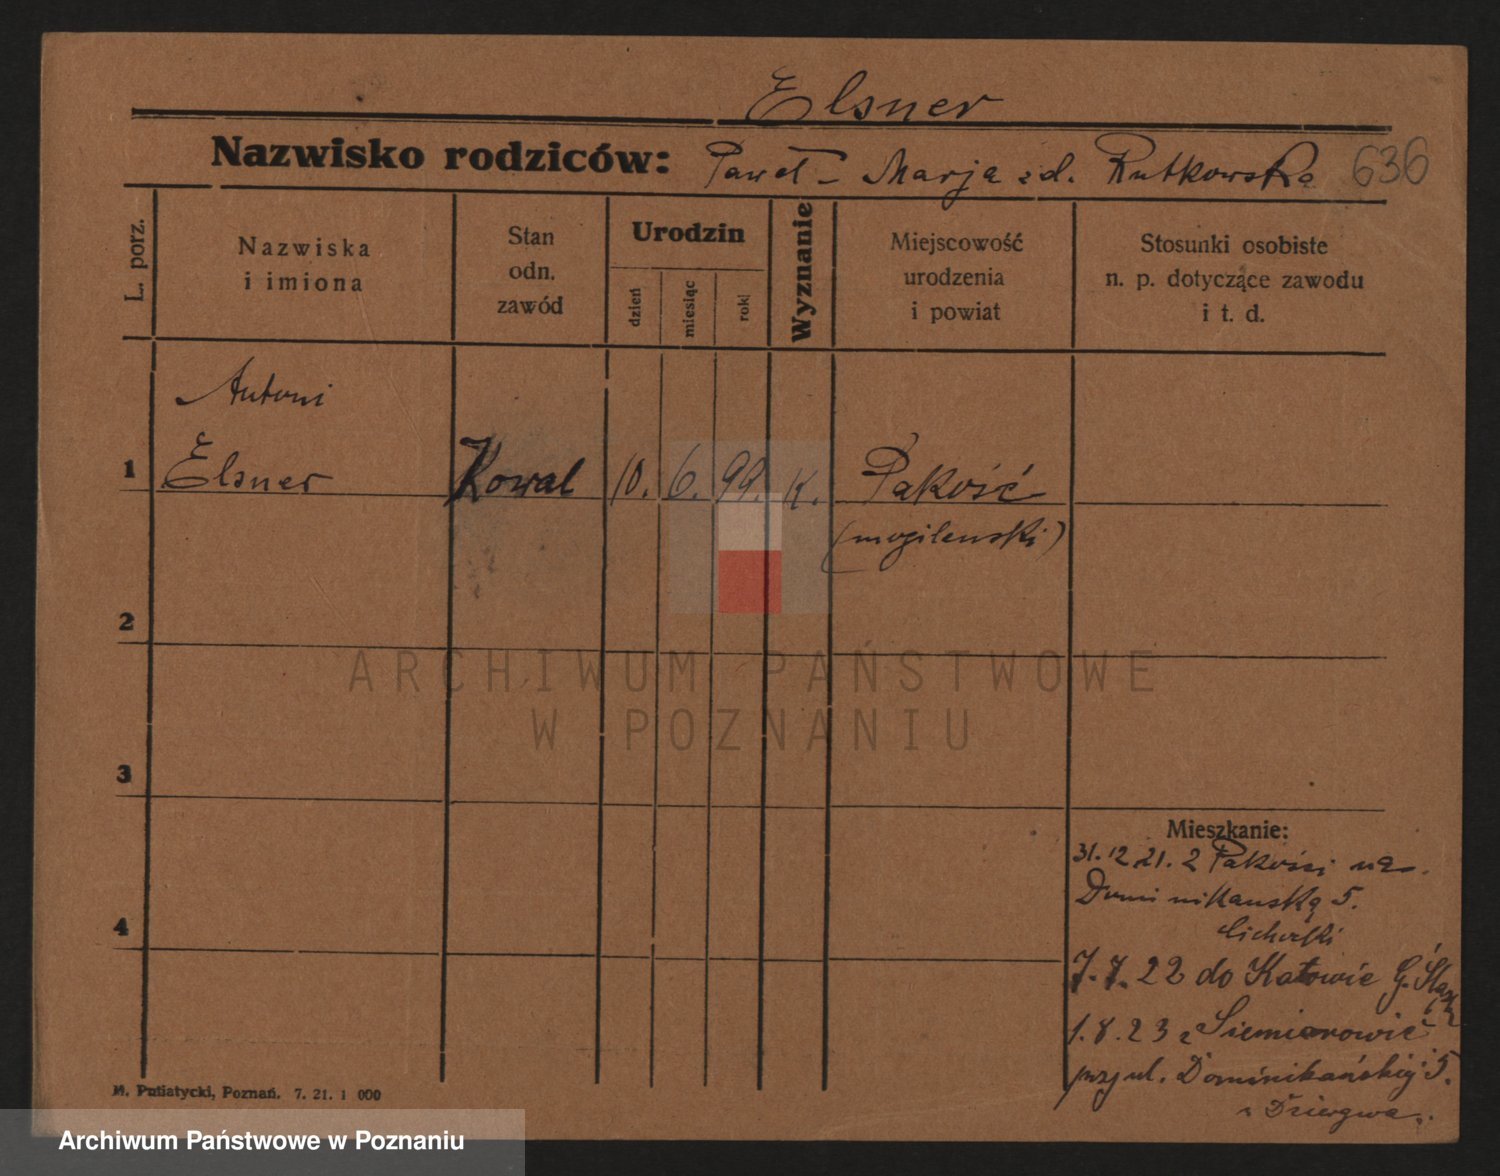 Elsner
Nazwisko rodziców: Paweł – Marja zd. Rutkowska 636
L. porz.
Nazwiska
i imiona
Stan
odn.
zawód
Urodzin
dzień
miesiąc
rok
Wyznanie
Miejscowość
urodzenia
i powiat
Stosunki osobiste
n. p. dotyczące zawodu
i t. d.
Antoni
1 Elsner Kowal 10. 6. 99. K. Pakość
(mogilenski)
2
3
4
ARCHIWUM PAŃSTWOWE
W POZNANIU
Mieszkanie:
31.12.21. z Pakości na
Dominikanską 5.
Cichocki
7.7.22 do Katowic G. Śląsk
1.8.23 z Siemianowic
przy ul. Dominikańskiej 5.
M. Putiatycki, Poznań. 7. 21. 1 000
Archiwum Państwowe w Poznaniu